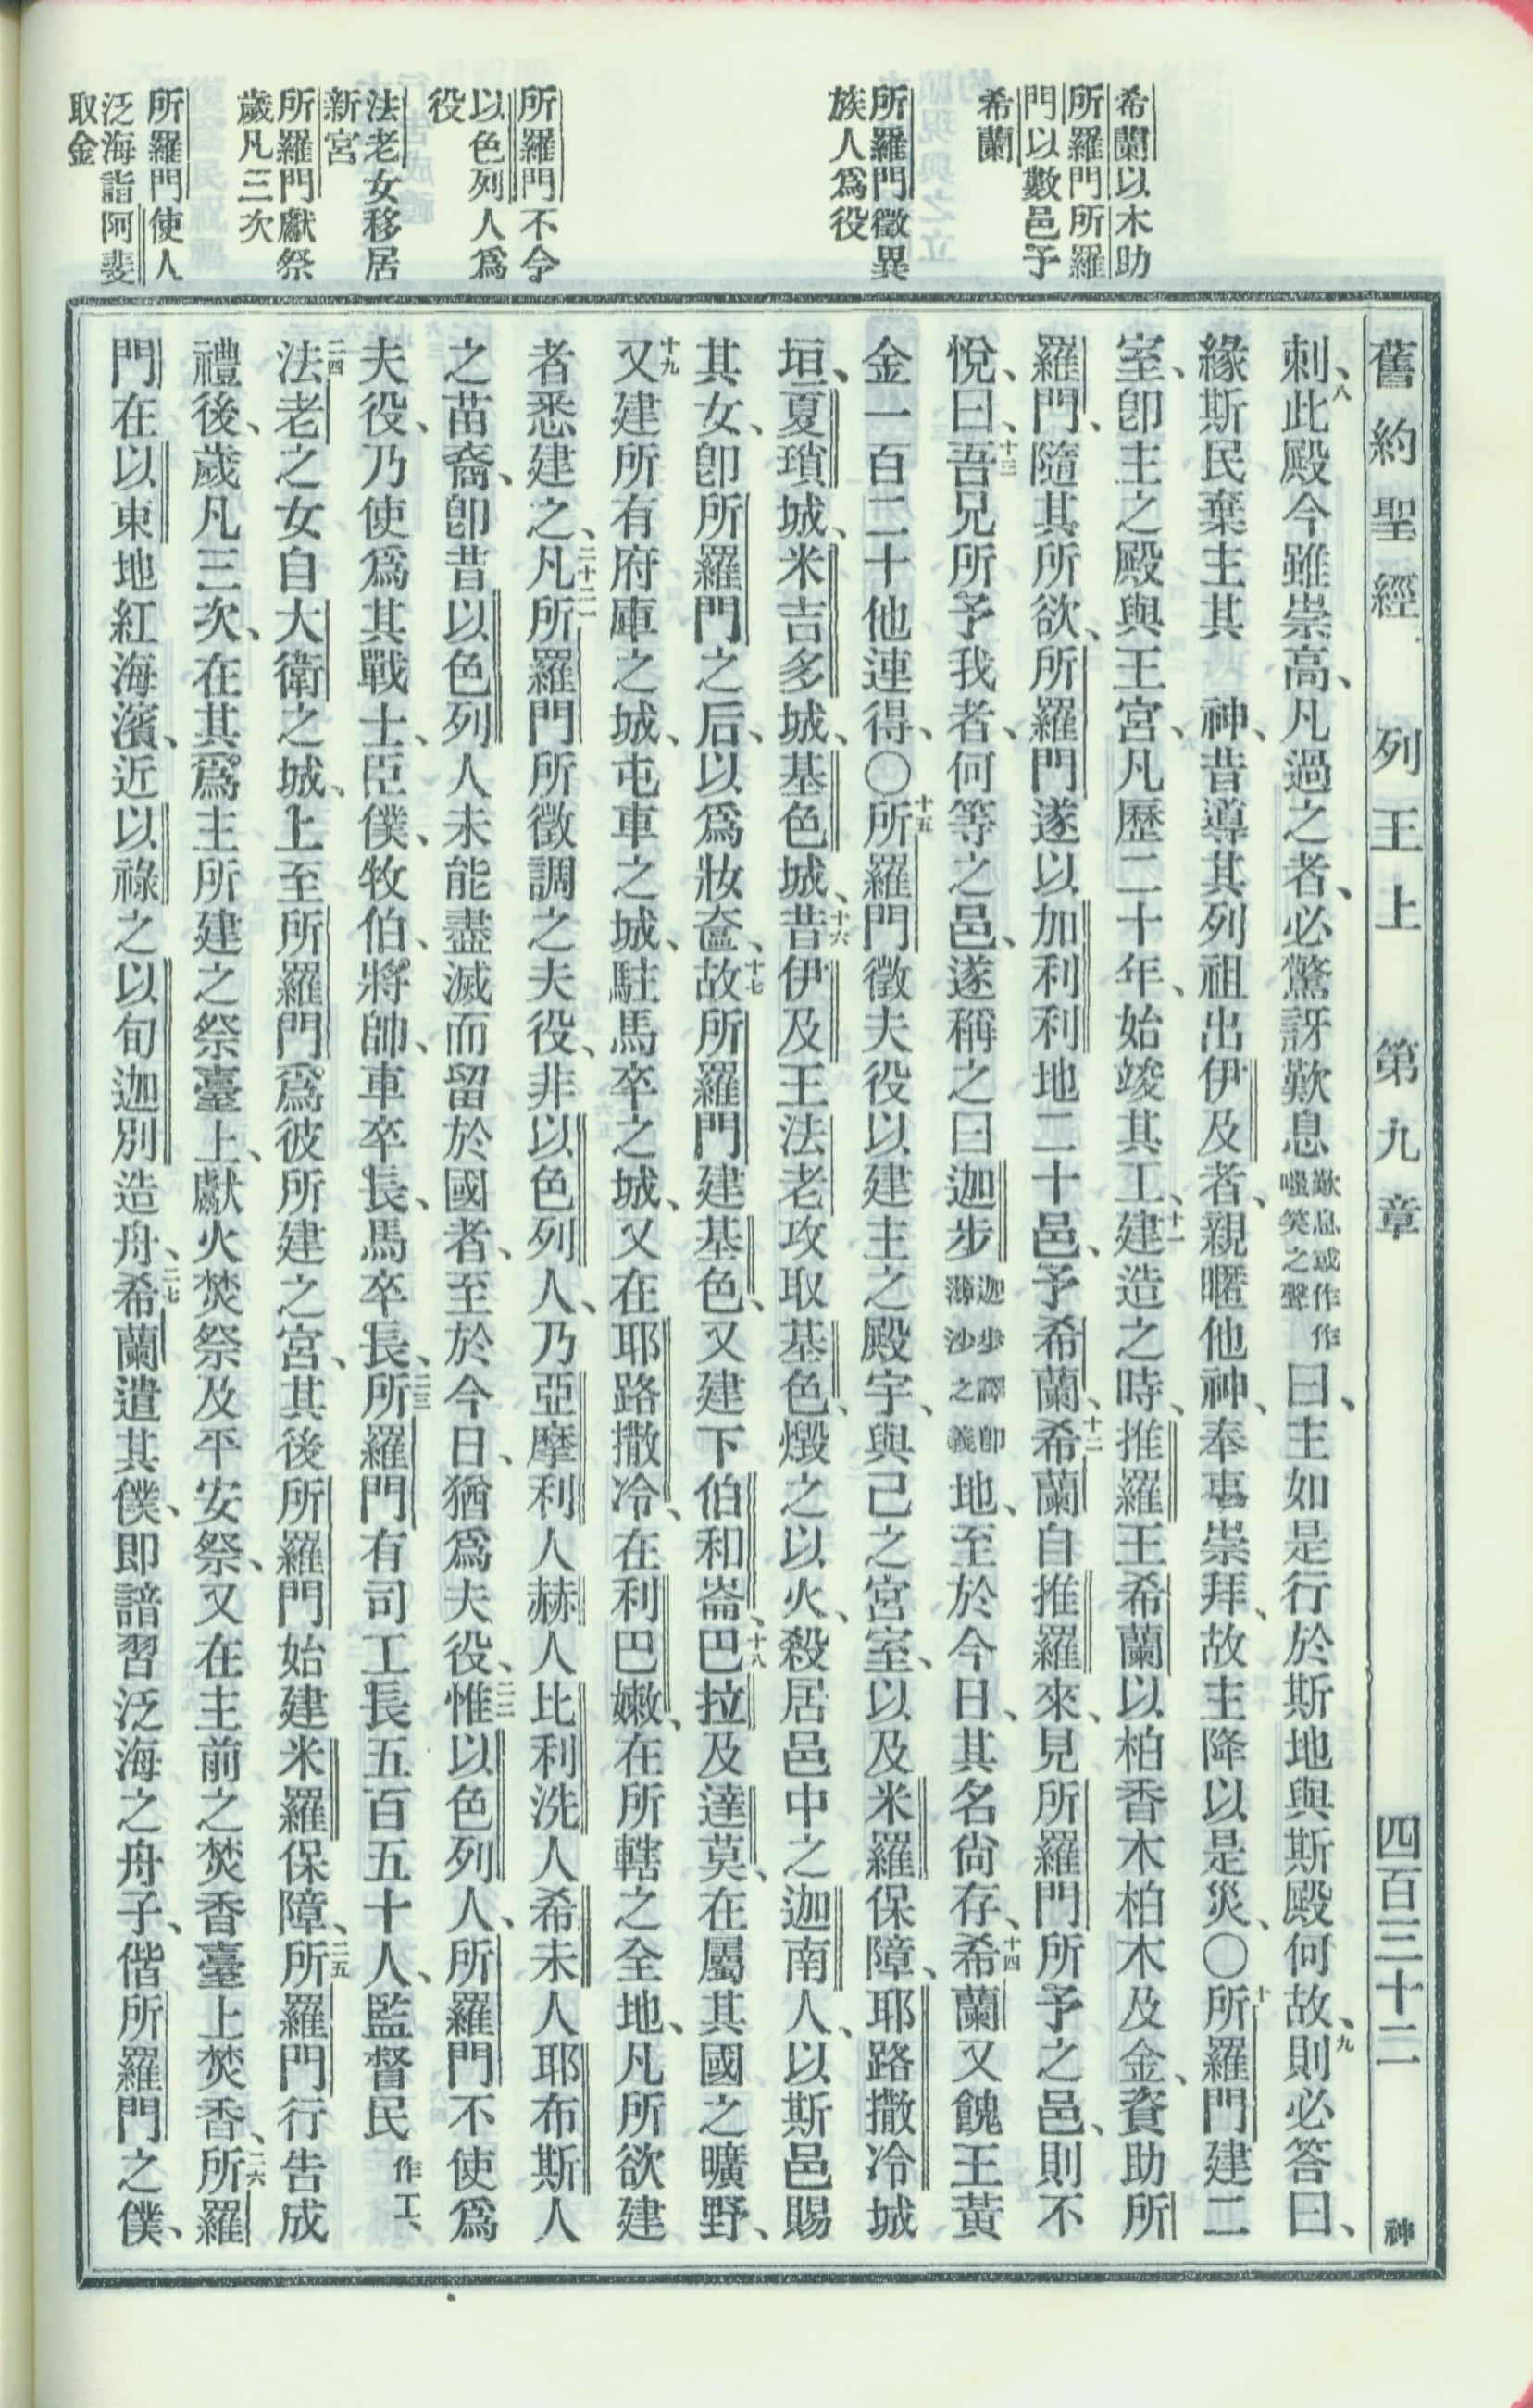 舊約聖經　列王上　第九章　四百三十二　神
希蘭以木助
所羅門所羅
門以數邑予
希蘭
所羅門徵異
族人爲役
所羅門不令
以色列人爲
役
法老女移居
新宮
所羅門獻祭
歲凡三次
所羅門使人
泛海詣阿斐
取金
刺、八此殿今雖崇高、凡過之者、必驚訝歎息歎息或作作嗤笑之聲曰、主如是行於斯地與斯殿何故、九則必答曰、
緣斯民棄主其　神、昔導其列祖出伊及者、親暱他神、奉事崇拜、故主降以是災、〇十所羅門建二
室、卽主之殿與王宮、凡歷二十年、始竣其工、十一建造之時、推羅王希蘭以柏香木柏木及金、資助所
羅門、隨其所欲、所羅門遂以加利利地二十邑、予希蘭、十二希蘭自推羅來、見所羅門所予之邑、則不
悅、曰、十三吾兄所予我者、何等之邑、遂稱之曰迦步迦步譯卽薄沙之義地、至於今日、其名尙存、十四希蘭又餽王黃
金一百二十他連得、〇十五所羅門徵夫役以建主之殿宇、與己之宮室、以及米羅保障、耶路撒冷城
垣、夏瑣城、米吉多城、基色城、十六昔伊及王法老攻取基色、燬之以火、殺居邑中之迦南人、以斯邑賜
其女、卽所羅門之后、以爲妝奩、十七故所羅門建基色、又建下伯和崙、十八巴拉及達莫、在屬其國之曠野、
十九又建所有府庫之城、屯車之城、駐馬卒之城、又在耶路撒冷、在利巴嫩、在所轄之全地、凡所欲建
者悉建之、二十凡所羅門所徵調之夫役、非以色列人、乃亞摩利人赫人比利洗人希未人耶布斯人
之苗裔、卽昔以色列人未能盡滅而留於國者、至於今日、猶爲夫役、二二惟以色列人、所羅門不使爲
夫役、乃使爲其戰士、臣僕、牧伯、將帥、車卒長、馬卒長、二三所羅門有司工長五百五十人、監督民作工、
二四法老之女自大衛之城、上至所羅門爲彼所建之宮、其後所羅門始建米羅保障、二五所羅門行告成
禮後、歲凡三次、在其爲主所建之祭臺上、獻火焚祭及平安祭、又在主前之焚香臺上焚香、二六所羅
門在以東地紅海濱、近以祿之以旬迦別造舟、二七希蘭遣其僕、即諳習泛海之舟子、偕所羅門之僕、